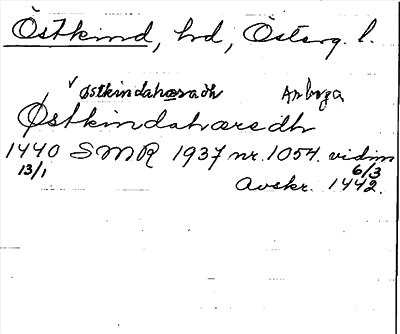 Östkind, hd, Österg. l.
v østkindahæradh Arboga
Østkindahæradh
1440 SMR 1937 nr. 1054. vidim
13/1 6/3
Avskr. 1442.